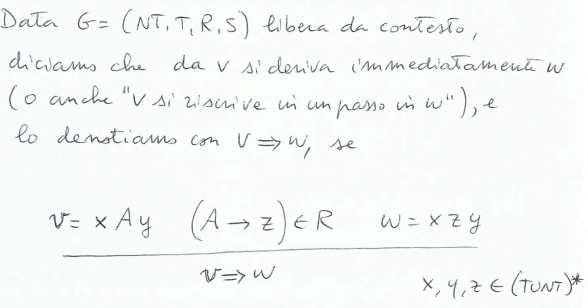 Data G = (NT, T, R, S) libera da contesto,
diciamo che da v si deriva immediatamente w
(o anche "v si riscrive in un passo in w"), e
lo denotiamo con v ⇒ w, se
v = x A y (A → z) ∈ R w = x z y
v ⇒ w
x, y, z ∈ (T∪NT)*